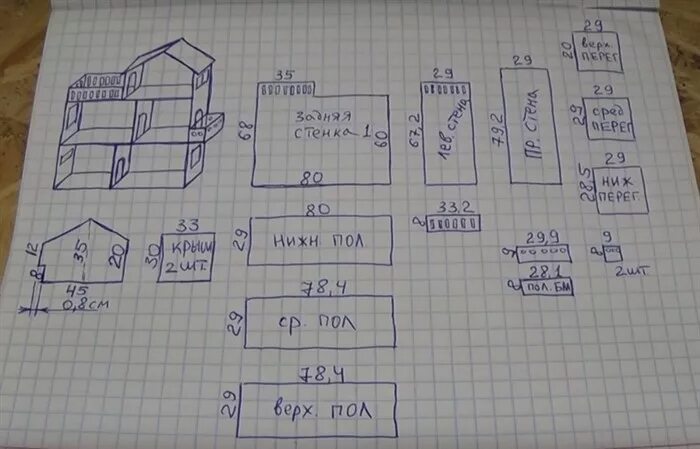 35
68
Задняя
стенка 1
60
80
29
67,2
Лев. стена
29
79,2
Пр. стена
29
20
верх.
ПЕРЕГ
29
29
сред
ПЕРЕГ
29
28,5
НИЖ
ПЕРЕГ.
12
35
20
8
45
0,8см
33
30
КРЫШ
2 шт.
80
29
нижн пол
33,2
8
29,9
9
28,1
8
пол. БМ
9
8
2шт
78,4
29
ср. пол
78,4
29
верх. пол